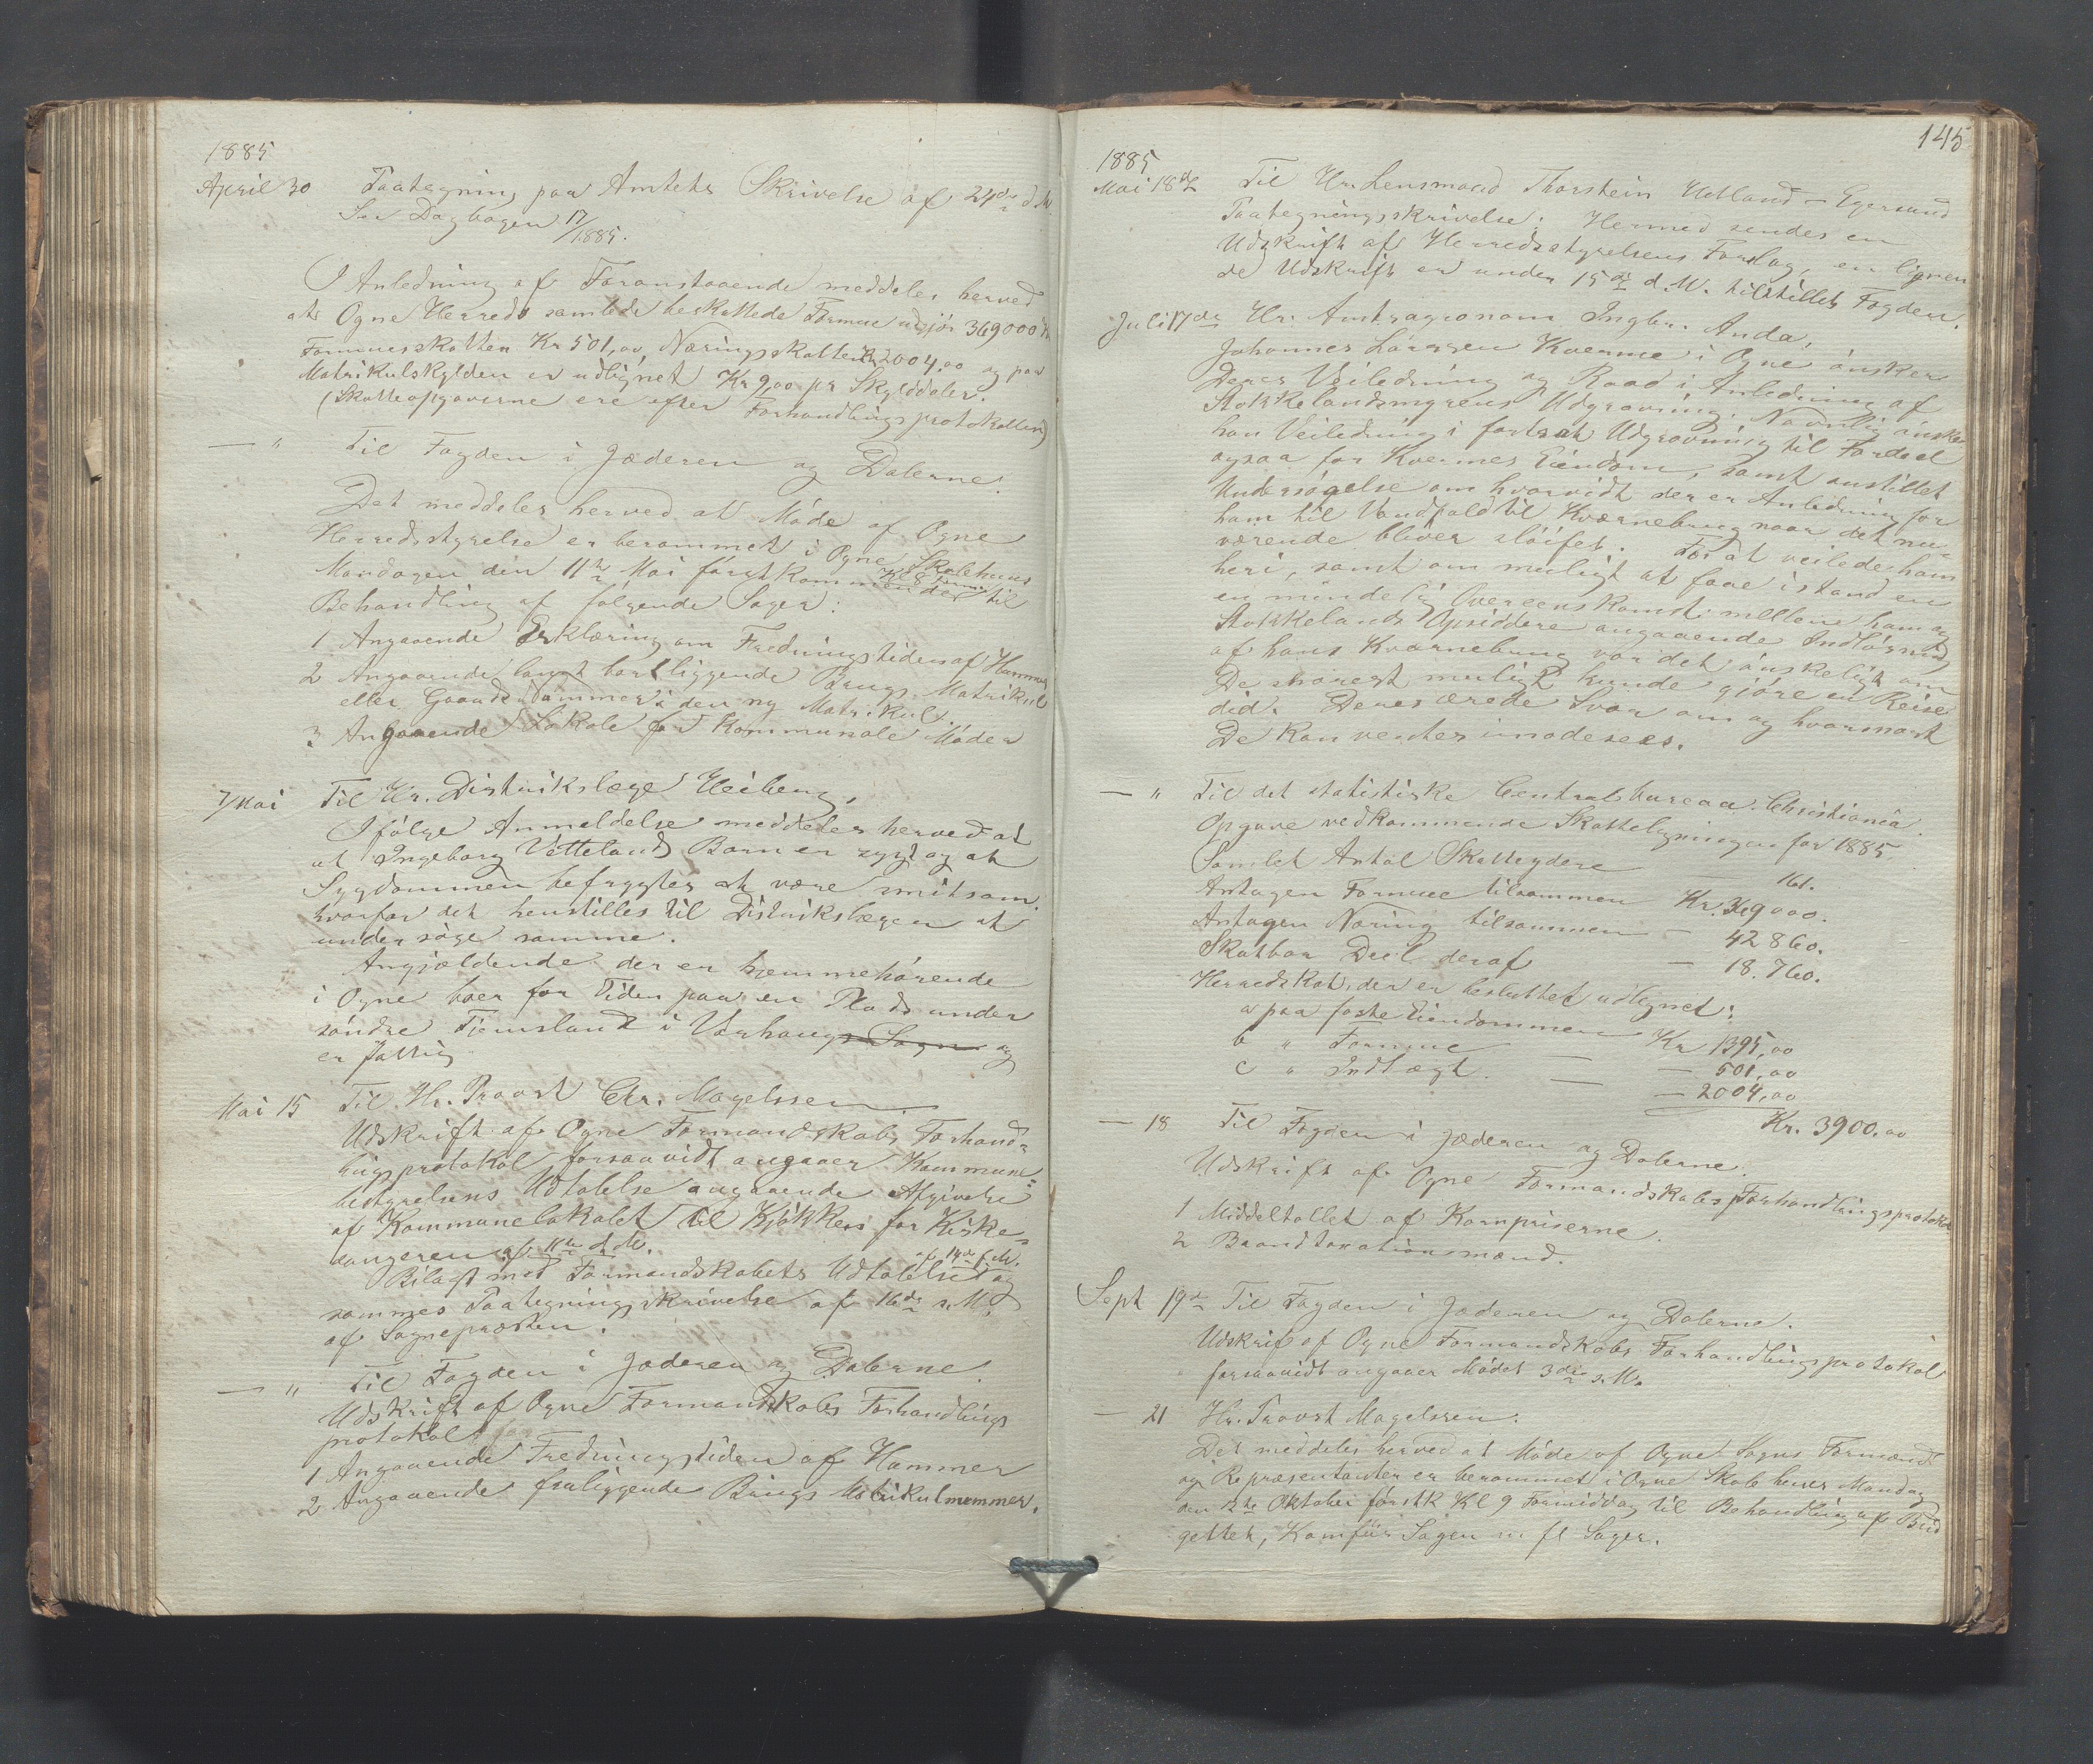 1885
April 30 Paategning paa Amtets Skrivelse af 24de d. M.
Se Dagbogen 17/1885.
I Anledning af Foranstaaende meddeles herved
at Ogne Herreds samlede beskattede Formue udgjør 369000 Kr
Formuesskatten Kr 501,00, Næringsskatten Kr 2004,00 og paa
Matrikulskylden er udlignet Kr 9,00 pr Skylddaler.
(Skatteopgaverne ere efter Forhandlingsprotokollen)
— " Til Fogden i Jæderen og Dalerne.
Det meddeles herved at Møde af Ogne
Herredsstyrelse er berammet i Ogne Skolehuus
Mandagen den 11te Mai førstkommendes Kl 8 til
Behandling af følgende Sager:
1 Angaaende Erklæring om Fredningstiden af Hummer
2 Angaaende bort liggende Brugs Matrikul
eller Gaards Nummer i den ny Matrikul.
3 Angaaende Lokale for Kommunale Møder
7/Mai Til Hr. Distrikslæge Heiberg,
Ifølge Anmeldelse meddeles herved at
at Ingeborg Vettelands Barn er sygt og at
Sygdommen befrygtes at være smitsom.
hvorfor det henstilles til Distrikslægen at
undersøge samme.
Angjældende der er hjemmehørende
i Ogne boer for Tiden paa en Plads under
søndre Tjemsland i Varhaug Sogn og
er fattig
Mai 15 Til Hr. Provst Chr. Magelssen.
Udskrift af Ogne Formandskabs Forhand=
lingsprotokol forsaavidt angaaer Kommune=
bestyrelsens Udtalelse angaaende Afgivelse
af Kommunelokalet til Kjøkken for Kirke=
sangeren af 11te d. M.
Bilagt med Formandskabets Udtalelse af 14de f. M. og
sammes Paategningsskrivelse af 16de s. M.
af Sognepræsten.
— " Til Fogden i Jæderen og Dalerne.
Udskrift af Ogne Formandskabs Forhandlings
protokol
1 Angaaende Fredningstiden af Hummer
2 Angaaende fraliggende Brugs Matrikulnummer.
145
1885
Mai 18de Til Hr. Lensmand Thorstein Hetland - Egersund
Paategningsskrivelse: Hermed sendes en
Udskrift af Herredsstyrelsens Forslag, en lignen
de Udskrift er under 15de d. M. tilstillet Fogden.
Juli 17de Hr. Amtsagronom Ingbr. Anda,
Johannes Larssen Kverme i Ogne ønsker
Deres Veiledning og Raad i Anledning af
Stokkelandsmyrens Udgrøvning. Navnlig ønsker
han Veiledning i fortsat Udgrøvning til Fordeel
ogsaa for Kvermes Eiendom, samt anstillet
Undersøgelse om hvorvidt der er Anledning for
ham til Vandfald til Kværnebrug naar det nu=
værende bliver sløifet. For at veilede ham
heri, samt om muligt at faae istand en
en mindelig Overeenskomst mellem ham og
Stokkelands Opsiddere angaaende Indløsning
af hans Kværnebrug var det ønskeligt om
De snarest muligt kunde gjøre en Reise
did. Deres ærede Svar om og hvorsnart
De kan ventes imødesees.
— " Til det statistiske Centralbureau. Christiania.
Opgave vedkommende Skatteligningen for 1885.
Samlet Antal Skatteydere — 161.
Antagen Formue tilsammen Kr. 369000.
Antagen Næring tilsammen — 42860.
Skatbar Deel deraf — 18.760.
Herredskat, der er besluttet udlignet:
a paa faste Eiendommen Kr 1395,00
b " Formue — 501,00
c " Indtægt — 2004,00
Kr. 3900.00
— 18 Til Fogden i Jæderen og Dalerne.
Udskrift af Ogne Formandskabs Forhandlingsprotokol
1 Middeltallet af Kornpriserne.
2 Brandtaxationsmænd.
Sept 19de Til Fogden i Jæderen og Dalerne.
Udskrif af Ogne Formandskabs Forhandlingsprotokol
forsaavidt angaaer Mødet 3die s. M.
— 21 Hr. Provst Magelssen.
Det meddeles herved at Møde af Ogne Sogns Formænd
og Repræsentanter er berammet i Ogne Skolehuus Mandag
den Oktober førstk Kl 9 Formiddag til Behandling af Bud
gettet, Komfür Sagen m fl Sager.